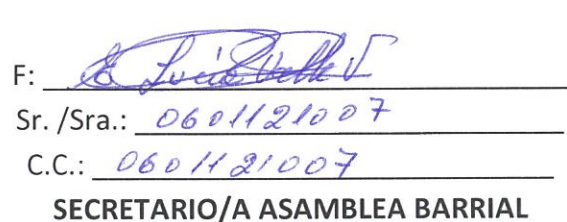 F: E Lucía Valle V
Sr. /Sra.: 0601121007
C.C.: 0601121007
SECRETARIO/A ASAMBLEA BARRIAL